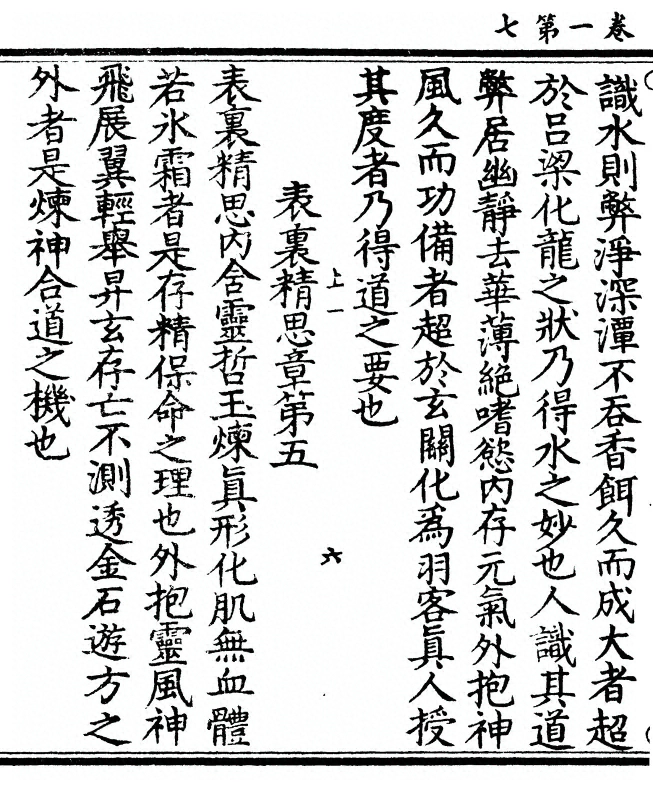 卷一第七
識水則弊淨深潭不吞香餌久而成大者超
於呂梁化龍之狀乃得水之妙也人識其道
弊居幽靜去華薄絶嗜慾內存元氣外抱神
風久而功備者超於玄關化為羽客真人授
其度者乃得道之要也
上一
六
表裏精思章第五
表裏精思內含靈哲玉煉真形化肌無血體
若氷霜者是存精保命之理也外抱靈風神
飛展翼輕舉昇玄存亡不測透金石遊方之
外者是煉神合道之機也